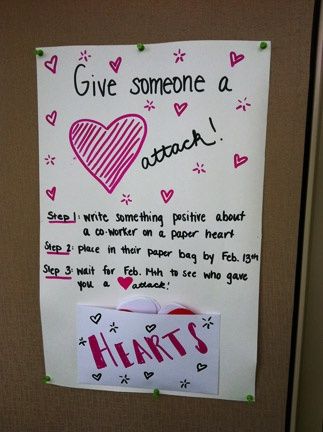 Give someone a
attack!
Step 1: write something positive about
a co-worker on a paper heart
Step 2: place in their paper bag by Feb. 13th
Step 3: wait for Feb. 14th to see who gave
you a attack!
HEARTS